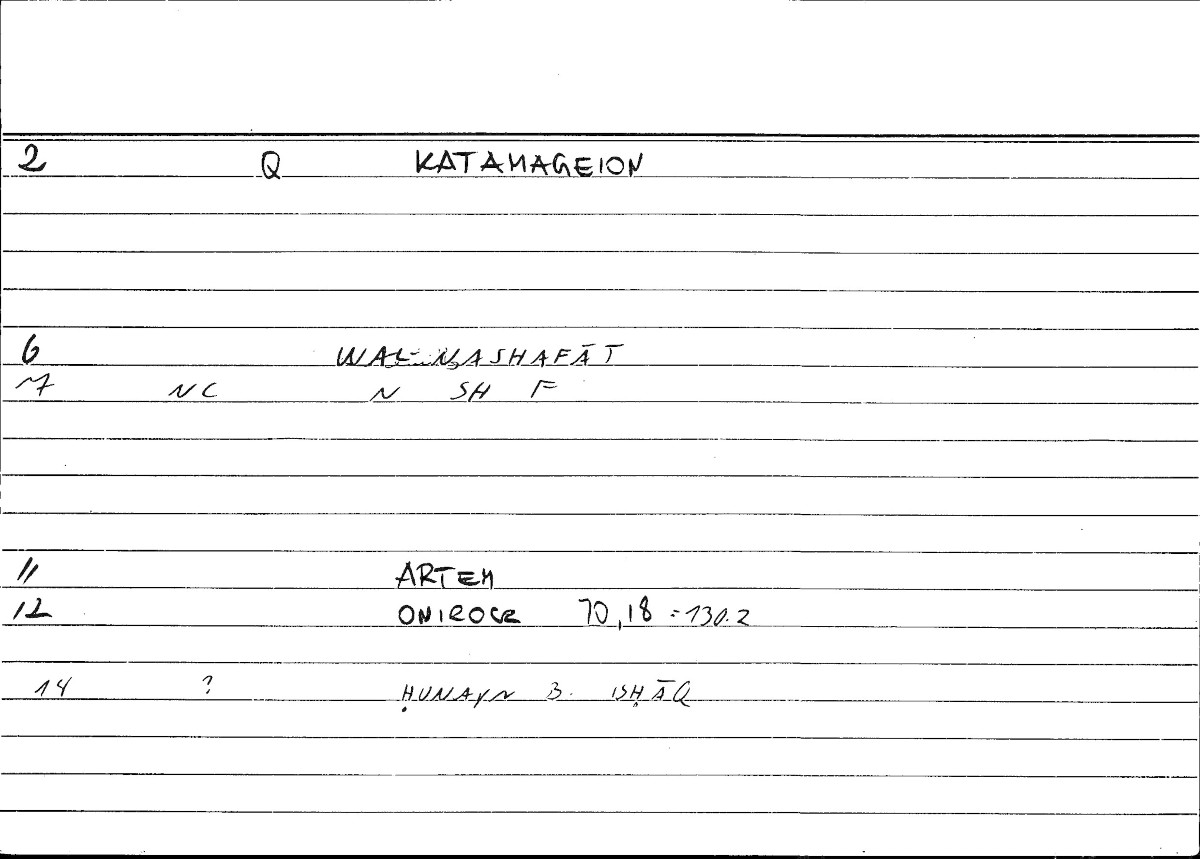 2 Q KATAMAGEION
6 WAL-NASHAFĀT
7 NC N SH F
11 ARTEM
12 ONIROCR 70,18 = 130.2
14 ? ḤUNAYN B. ISḤĀQ